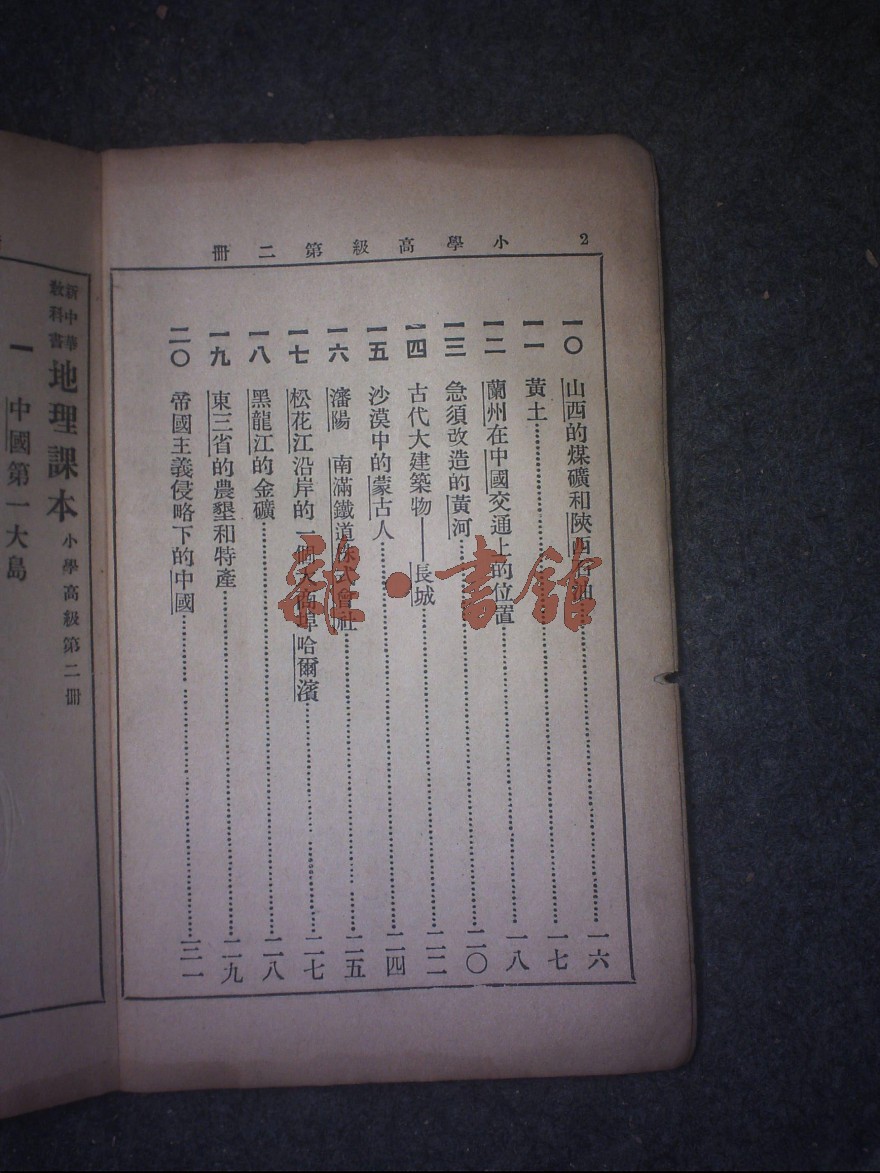 2
小學高級第二冊
一〇 山西的煤礦和陝西石油……一六
一一 黃土……一七
一二 蘭州在中國交通上的位置……一八
一三 急須改造的黃河……二〇
一四 古代大建築物——長城……二二
一五 沙漠中的蒙古人……二四
一六 瀋陽 南滿鐵道株式會社……二五
一七 松花江沿岸的一個大商埠哈爾濱……二七
一八 黑龍江的金礦……二八
一九 東三省的農墾和特產……二九
二〇 帝國主義侵略下的中國……三一
新中華教科書 地理課本 小學高級第二冊
一 中國第一大島
雜·書館